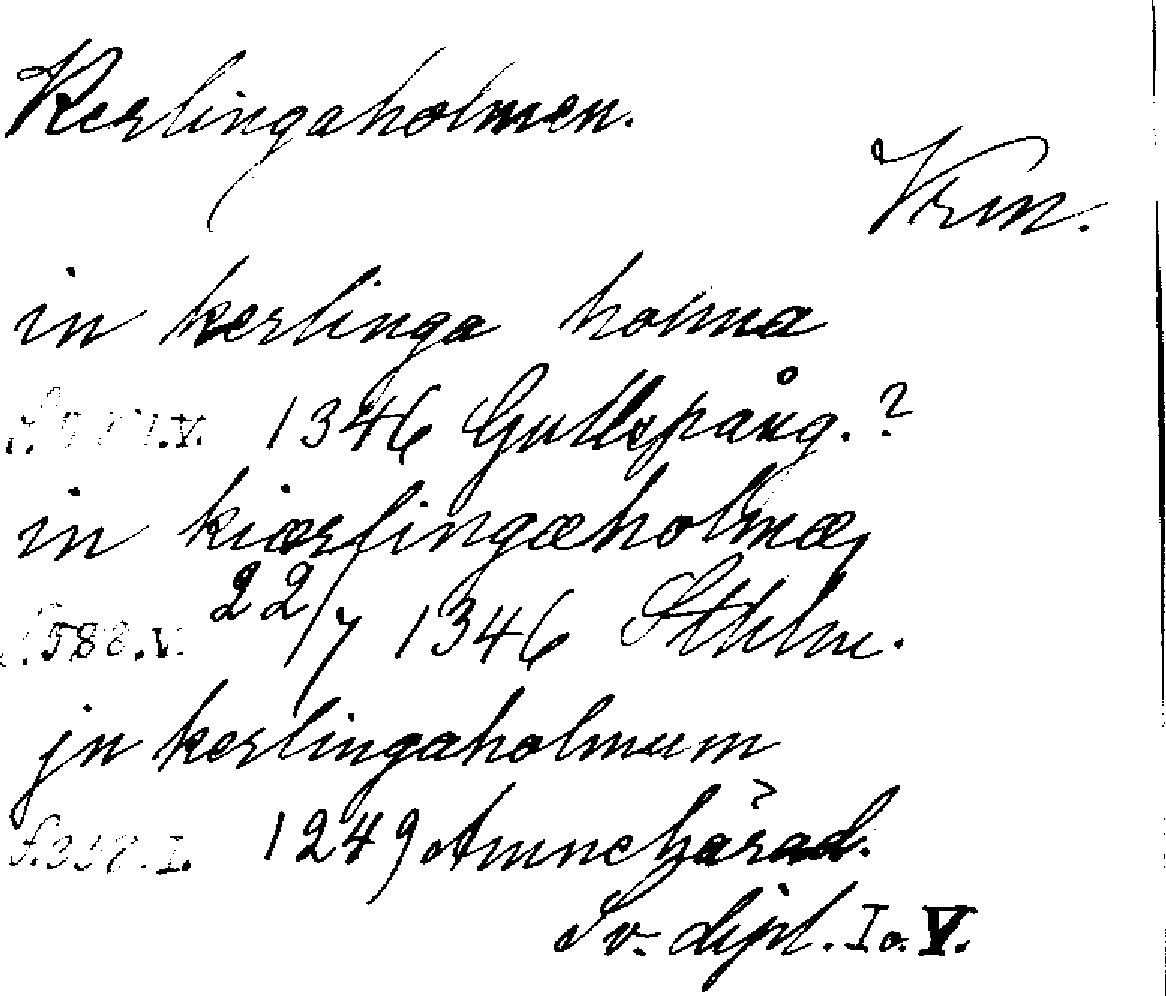 Kerlingaholmen.
Vrm.
in kerlinga holma
1346 Gullspång.?
in kiærlingæholmæ,
s. 588. V. 22/7 1346 Sthlm.
jn kerlingaholmum
1249 Amnehärad.
Sv. dipl. I o. V.